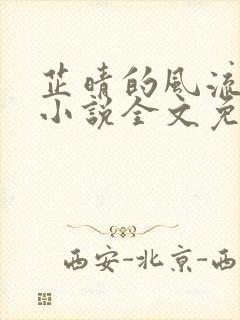 芷晴的风流
小说全文免
西安-北京-西